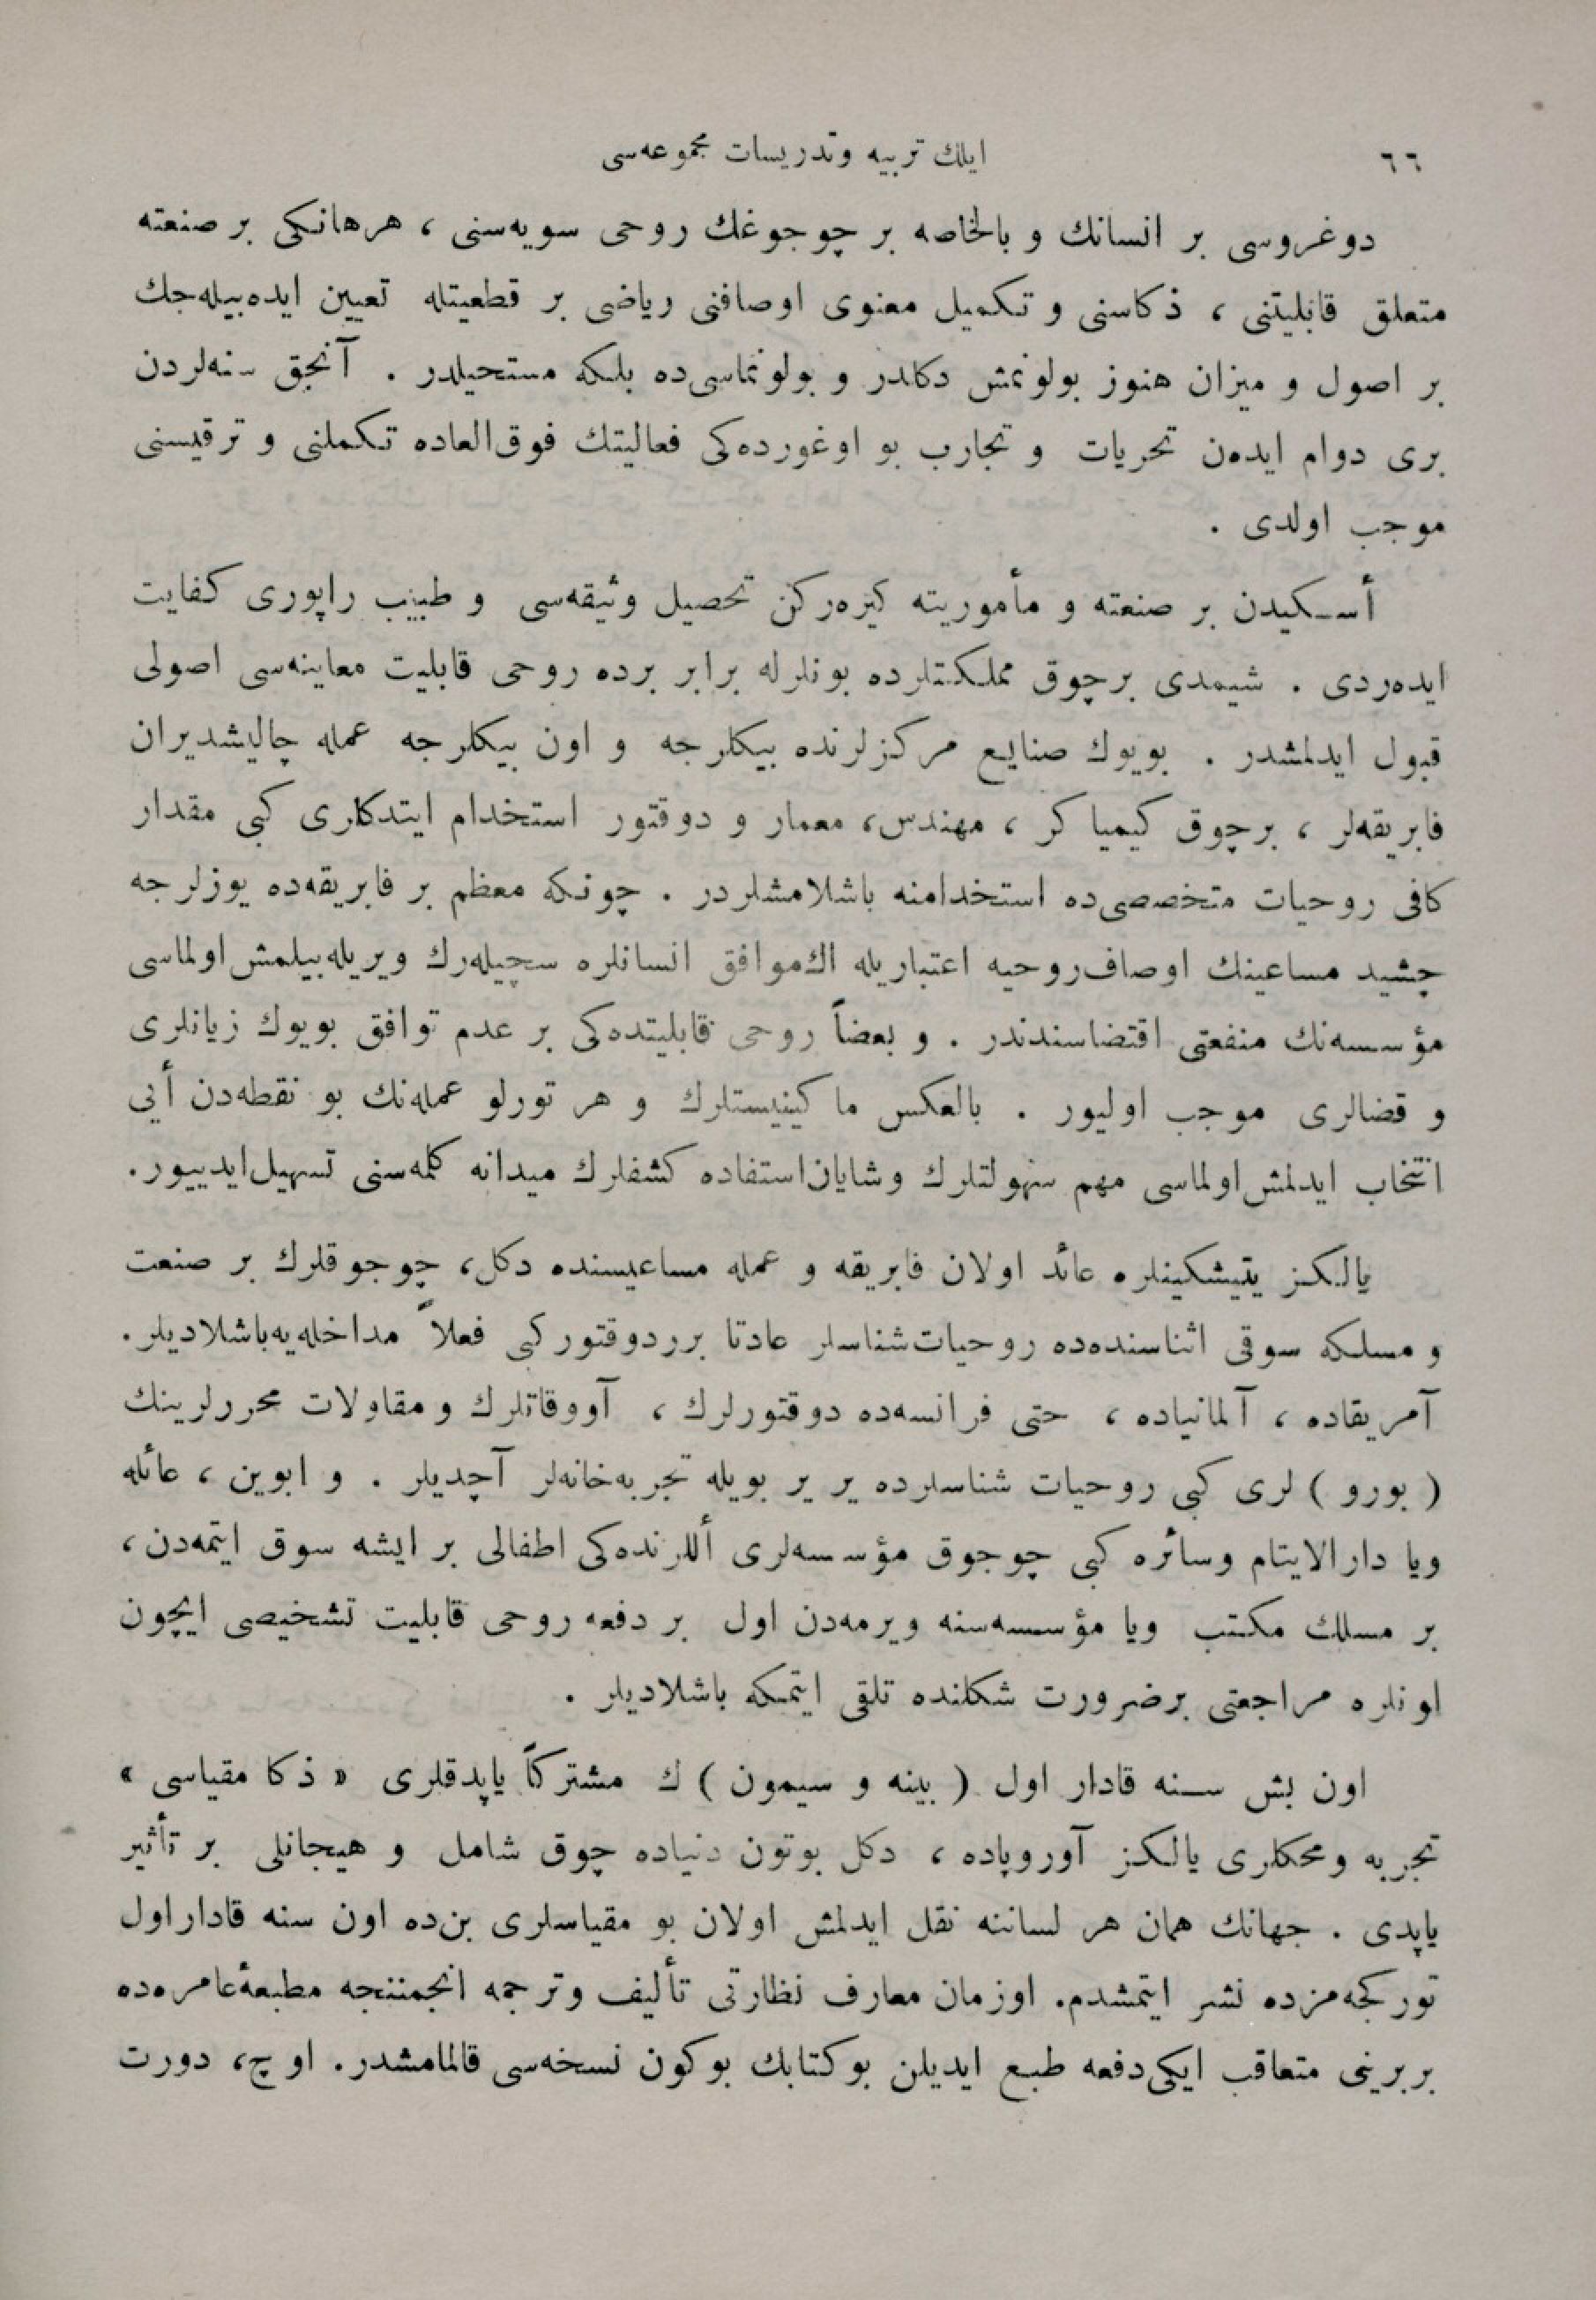 ٦٦
ايلك تربيه وتدريسات مجموعه‌سى
دوغروسى بر انسانك و بالخاصه بر چوجوغك روحى سويه‌سنى ، هرهانكى بر صنعته
متعلق قابليتنى ، ذكاسنى و تكميل معنوى اوصافنى رياضى بر قطعيتله تعيين ايده‌بيله‌جك
بر اصول و ميزان هنوز بولونمش دكلدر و بولونماسى‌ده بلكه مستحيلدر . آنجق سنه‌لردن
برى دوام ايده‌ن تحريات و تجارب بو اوغورده‌كى فعاليتك فوق‌العاده تكملنى و ترقيسنى
موجب اولدى .
أسكيدن بر صنعته و مأموريته كيره‌ركن تحصيل وثيقه‌سى و طبيب راپورى كفايت
ايده‌ردى . شيمدى برچوق مملكتلرده بونلرله برابر برده روحى قابليت معاينه‌سى اصولى
قبول ايدلمشدر . بويوك صنايع مركزلرنده بيكلرجه و اون بيكلرجه عمله چاليشديران
فابريقه‌لر ، برچوق كيمياكر ، مهندس، معمار و دوقتور استخدام ايتدكلرى كبى مقدار
كافى روحيات متخصصى‌ده استخدامنه باشلامشلردر . چونكه معظم بر فابريقه‌ده يوزلرجه
چشيد مساعينك اوصاف‌روحيه اعتباريله اك‌موافق انسانلره سچيله‌رك ويريله‌بيلمش‌اولماسى
مؤسسه‌نك منفعتى اقتضاسندندر . و بعضاً روحى قابليتده‌كى بر عدم توافق بويوك زيانلرى
و قضالرى موجب اوليور . بالعكس ماكينيستلرك و هر تورلو عمله‌نك بو نقطه‌دن أيى
انتخاب ايدلمش‌اولماسى مهم سهولتلرك وشايان‌استفاده كشفلرك ميدانه كلمه‌سنى تسهيل‌ايدييور.
يالكز يتيشكينلره عائد اولان فابريقه و عمله مساعيسنده دكل، چوجوقلرك بر صنعت
و مسلكه سوقى اثناسنده‌ده روحيات‌شناسلر عادتا برردوقتوركبى فعلاً مداخله‌يه‌باشلاديلر.
آمريقاده ، آلمانياده ، حتى فرانسه‌ده دوقتورلرك ، آووقاتلرك ومقاولات محررلرينك
( بورو ) لرى كبى روحيات شناسلرده ير ير بويله تجربه‌خانه‌لر آچديلر . و ابوين ، عائله
ويا دارالايتام وسائره كبى چوجوق مؤسسه‌لرى أللرنده‌كى اطفالى بر ايشه سوق ايتمه‌دن،
بر مسلك مكتب ويا مؤسسه‌سنه ويرمه‌دن اول بر دفعه روحى قابليت تشخيصى ايچون
اونلره مراجعتى برضرورت شكلنده تلقى ايتمكه باشلاديلر .
اون بش سنه قادار اول ( بينه و سيمون ) ك مشتركاً ياپدقلرى « ذكا مقياسى »
تجربه ومحكلرى يالكز آوروپاده ، دكل بوتون دنياده چوق شامل و هيجانلى بر تأثير
ياپدى . جهانك همان هر لساننه نقل ايدلمش اولان بو مقياسلرى بن‌ده اون سنه قاداراول
توركجه‌مزده نشر ايتمشدم. اوزمان معارف نظارتى تأليف وترجمه انجمننجه مطبعهٔ‌عامره‌ده
بربرينى متعاقب ايكى‌دفعه طبع ايديلن بوكتابك بوكون نسخه‌سى قالمامشدر. اوچ، دورت